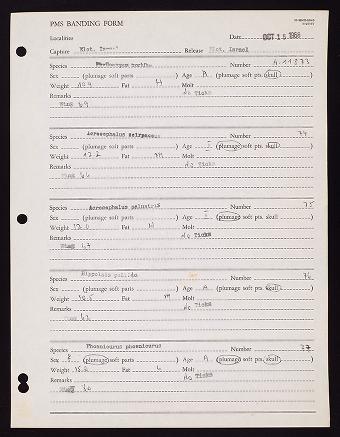 PMS BANDING FORM
Localities Date OCT 15 1968
Capture Elat, Israel Release Elat, Israel
Species Number A-11873
Sex (plumage soft parts ) Age A (plumage soft pts. skull )
Weight Fat H Molt
Remarks No Ticks
Wing 69
Species Acrocephalus scirpaceus Number 74
Sex (plumage soft parts ) Age I (plumage soft pts. skull )
Weight Fat M Molt
Remarks No Ticks
Wing
Species Acrocephalus palustris Number 75
Sex (plumage soft parts ) Age I (plumage soft pts. skull )
Weight Fat Molt
Remarks No Ticks
Wing 67
Species Hippolais pallida Number 76
Sex (plumage soft parts ) Age A (plumage soft pts. skull )
Weight 10.5 Fat M Molt
Remarks No Ticks
Wing
Species Phoenicurus phoenicurus Number 77
Sex (plumage soft parts ) Age A (plumage soft pts. skull )
Weight 15.2 Fat L Molt
Remarks No Ticks
Wing